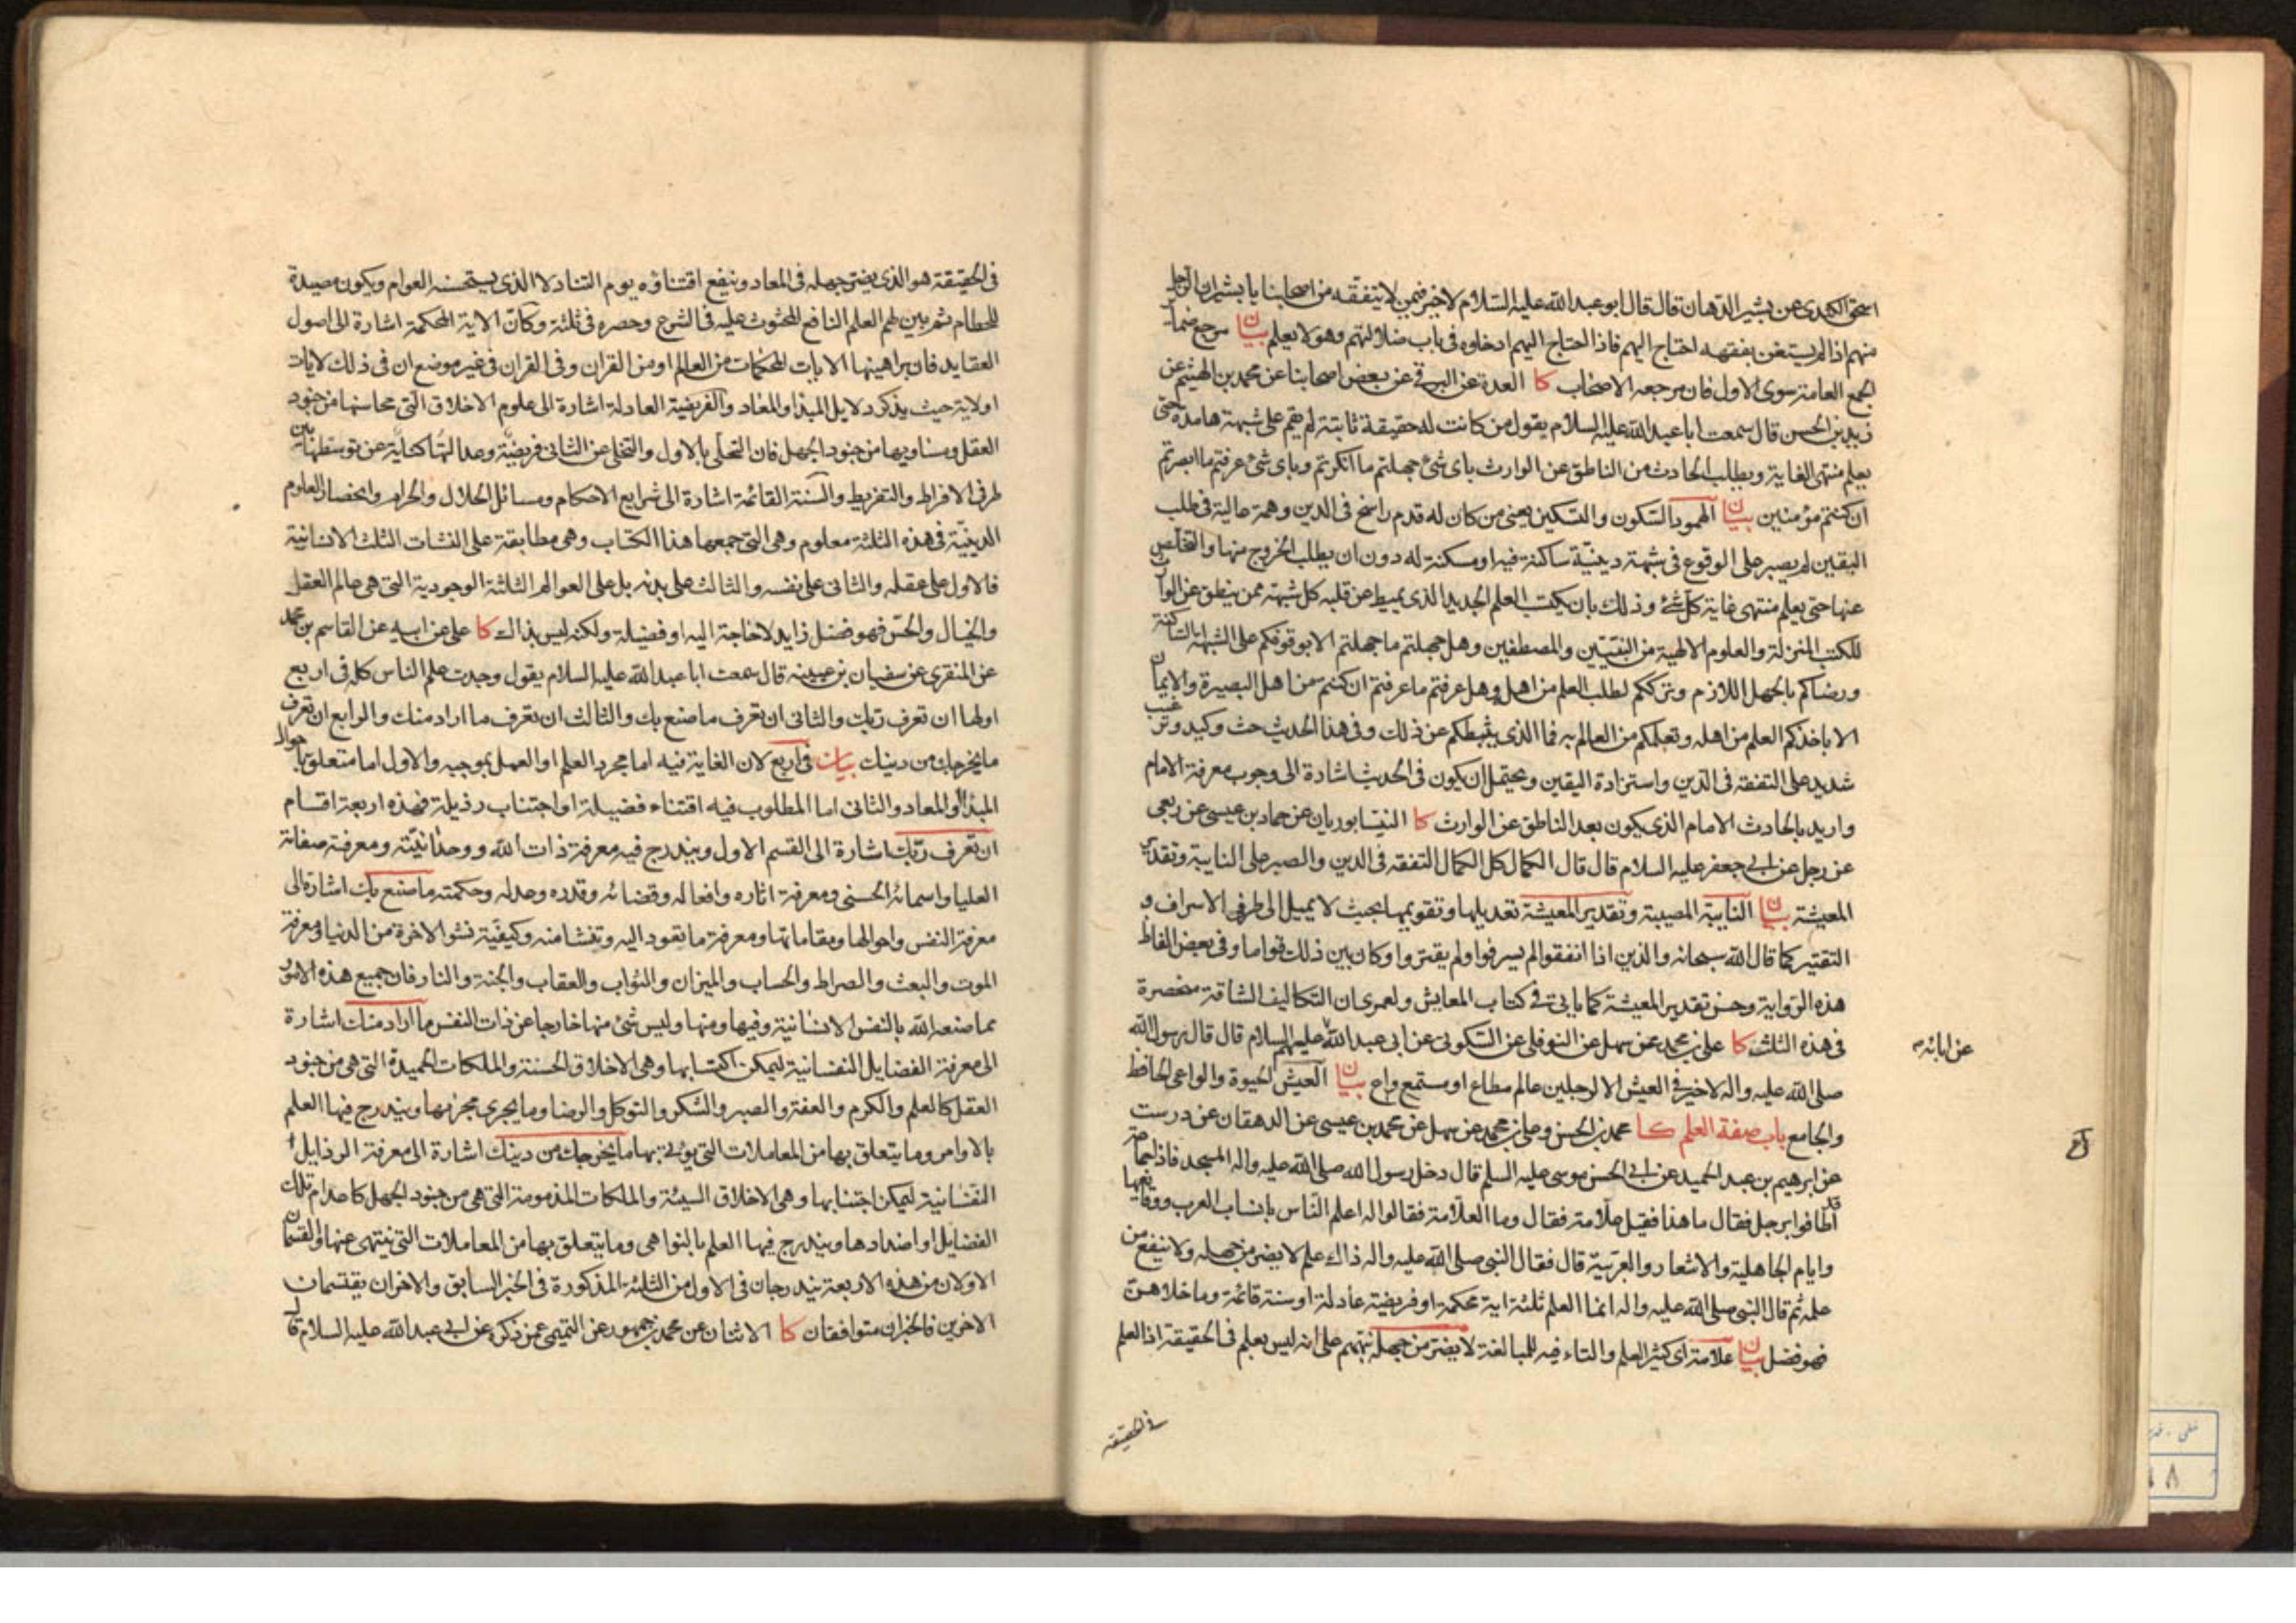 اسحق الكندى عن بشير الدهان قال قال ابو عبدالله عليه السلام لا خير فيمن لا يتفقه من اصحابنا يا بشير ان الرجل
منهم اذا لم يستغن بفقهه احتاج اليهم فاذا احتاج اليهم ادخلوه فى باب ضلالتهم وهو لا يعلم بيان مرجع ضمائر
الجمع العامة سوى الاول فان مرجعه الاصحاب كا العدة عن البرقى عن بعض اصحابنا عن محمد بن الهيثم عن
زيد بن الحسن قال سمعت ابا عبدالله عليه السلام يقول من كانت له حقيقة ثابتة لم يقم على شبهة هامدة حتى
يعلم منتهى الغاية ويطلب الحادث من الناطق عن الوارث باى شئ جهلتم ما انكرتم وباى شئ عرفتم ما ابصرتم
ان كنتم مؤمنين بيان الهمود السكون والتسكين يعنى من كان له قدم راسخ فى الدين وهمة عالية فى طلب
اليقين لم يصبر على الوقوع فى شبهة دينية ساكنة فيه او مسكنة له دون ان يطلب الخروج منها والتخلص
عنها حتى يعلم منتهى غاية كل شئ وذلك بان يكتب العلم الجديد الذى يميط عن قلبه كل شبهة ممن ينطق عن الوارث
للكتب المنزلة والعلوم الالهية من النبيين والمصطفين وهل جهلتم ما جهلتم الا بوقوفكم على الشبهات الساكنة
ورضاكم بالجهل اللازم وترككم لطلب العلم من اهله وهل عرفتم ما عرفتم ان كنتم من اهل البصيرة والايمان
الا باخذكم العلم من اهله وتعلمكم من العالم به فما الذى يثبطكم عن ذلك وفى هذا الحديث حث وكيد وترغيب
شديد على التفقه فى الدين واستزادة اليقين ويحتمل ان يكون فى الحديث اشارة الى وجوب معرفة الامام
واريد بالحادث الامام الذى يكون بعد الناطق عن الوارث كا النيسابوريان عن حماد بن عيسى عن ربعى
عن رجل عن ابى جعفر عليه السلام قال قال الكمال كل الكمال التفقه فى الدين والصبر على النايبة وتقدير
المعيشة بيان النايبة المصيبة وتقدير المعيشة تعديلها وتقويمها بحيث لا يميل الى طرفى الاسراف و
التقتير كما قال الله سبحانه والذين اذا انفقوا لم يسرفوا ولم يقتروا وكان بين ذلك قواما وفى بعض الفاظ
هذه الرواية وحسن تقدير المعيشة كما ياتى فى كتاب المعايش ولعمرى ان التكاليف الشاقة منحصرة
فى هذه الثلث كا على بن محمد عن سهل عن النوفلى عن السكونى عن ابى عبدالله عليهم السلام قال قال رسول الله
عن ابائه
صلى الله عليه واله لا خير فى العيش الا لرجلين عالم مطاع او مستمع واع بيان العيش الحيوة والواعى الحافظ
والجامع باب صفة العلم كا محمد بن الحسن وعلى بن محمد عن سهل عن محمد بن عيسى عن الدهقان عن درست
عن ابرهيم بن عبد الحميد عن ابى الحسن موسى عليه السلم قال دخل رسول الله صلى الله عليه واله المسجد فاذا جماعة
قد اطافوا برجل فقال ما هذا فقيل علامة فقال وما العلامة فقالوا له اعلم الناس بانساب العرب ووقايعها
وايام الجاهلية والاشعار والعربية قال فقال النبى صلى الله عليه واله ذاك علم لا يضر من جهله ولا ينفع من
علمه ثم قال النبى صلى الله عليه واله انما العلم ثلثة اية محكمة او فريضة عادلة او سنة قائمة وما خلاهن
فهو فضل بيان علامة اى كثير العلم والتاء فيه للمبالغة لا يضر من جهله نبههم على انه ليس بعلم فى الحقيقة اذ العلم
فى الحقيقه
فى الحقيقة هو الذى يضر جهله فى المعاد وينفع اقتناؤه يوم التناد لا الذى يستحسنه العوام ويكون مصيدة
للحطام ثم بين لهم العلم النافع المحثوث عليه فى الشرع وحصره فى ثلثة وكان الاية المحكمة اشارة الى اصول
العقايد فان براهينها الايات المحكمات من العالم او من القران وفى القران فى غير موضع ان فى ذلك لايات
او لاية حيث يذكر دلايل المبدا والمعاد والفريضة العادلة اشارة الى علوم الاخلاق التى محاسنها من جنود
العقل ومساويها من جنود الجهل فان التحلى بالاول والتخلى عن الثانى فريضة وعدالتها كناية عن توسطها بين
طرفى الافراط والتفريط والسنة القائمة اشارة الى شرايع الاحكام ومسائل الحلال والحرام وانحصار العلوم
الدينية فى هذه الثلثة معلوم وهى التى جمعها هذا الكتاب وهى مطابقة على النشات الثلث الانسانية
فالاول على عقله والثانى على نفسه والثالث على بدنه بل على العوالم الثلثة الوجودية التى هى عالم العقل
والخيال والحس فهو فضل زايد لا حاجة اليه او فضيلة ولكنه ليس بذاك كا على عن ابيه عن القاسم بن محمد
عن المنقرى عن سفيان بن عيينه قال سمعت ابا عبدالله عليه السلام يقول وجدت علم الناس كله فى اربع
اولها ان تعرف ربك والثانى ان تعرف ما صنع بك والثالث ان تعرف ما اراد منك والرابع ان تعرف
ما يخرجك من دينك بيان فى اربع لان الغاية فيه اما مجرد العلم او العمل بموجبه والاول اما متعلق باحوال
المبدا او المعاد والثانى اما المطلوب فيه اقتناء فضيلة او اجتناب رذيلة فهذه اربعة اقسام
ان تعرف ربك اشارة الى القسم الاول ويندرج فيه معرفة ذات الله ووحدانيته ومعرفة صفاته
العليا واسمائه الحسنى ومعرفة اثاره وافعاله وقضائه وقدره وعدله وحكمته ما صنع بك اشارة الى
معرفة النفس واحوالها ومقاماتها ومعرفة ما تعود اليه وتنشا منه وكيفية نشو الاخرة من الدنيا ومعرفة
الموت والبعث والصراط والحساب والميزان والثواب والعقاب والجنة والنار فان جميع هذه الامور
مما صنعه الله بالنفس الانسانية وفيها ومنها وليس شئ منها خارجا عن ذات النفس ما اراد منك اشارة
الى معرفة الفضايل النفسانية ليمكن اكتسابها وهى الاخلاق الحسنة والملكات الحميدة التى هى من جنود
العقل كالعلم والكرم والعفة والصبر والشكر والتوكل والرضا وما يجرى مجريها ويندرج فيها العلم
بالاوامر وما يتعلق بها من المعاملات التى يؤتى بها ما يخرجك من دينك اشارة الى معرفة الرذايل
النفسانية ليمكن اجتنابها وهى الاخلاق السيئة والملكات المذمومة التى هى من جنود الجهل كاعدام تلك
الفضايل او اضدادها ويندرج فيها العلم بالنواهى وما يتعلق بها من المعاملات التى ينتهى عنها والقسمان
الاولان من هذه الاربعة يندرجان فى الاول من الثلثة المذكورة فى الخبر السابق والاخران يقتسمان
الاخرين فالخبران متوافقان كا الاثنان عن محمد بن جمهور عن التميمى عمن ذكره عن ابى عبدالله عليه السلام قال